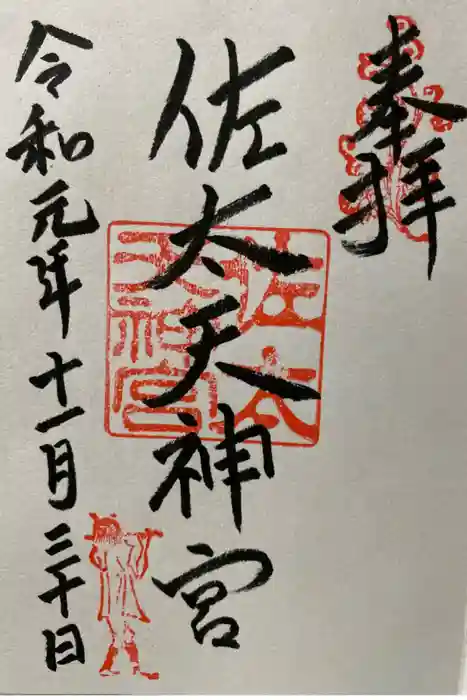 奉拝
佐太天神宮
佐太天神宮
令和元年十一月三十日